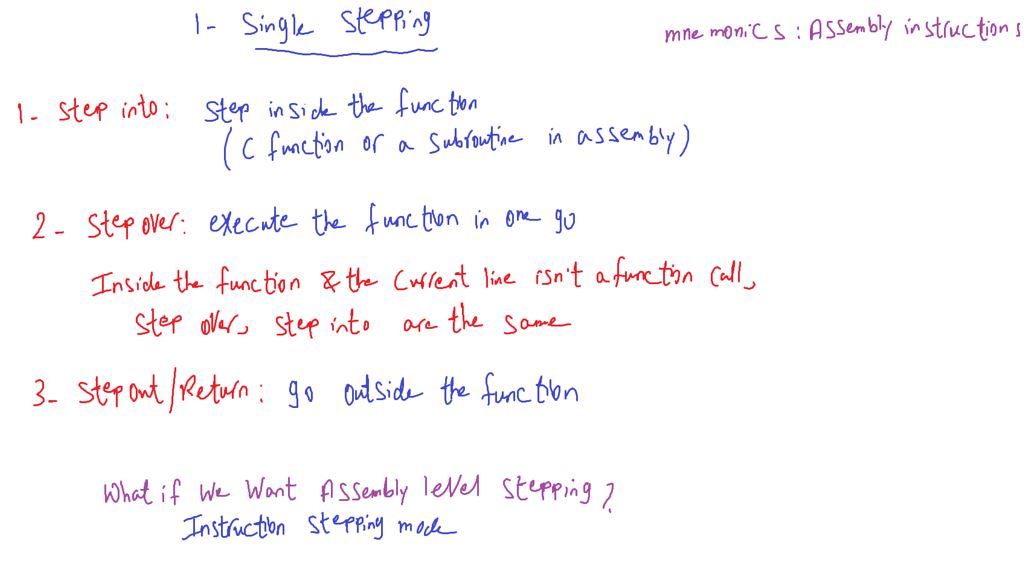 1- Single Stepping
mnemonics: Assembly instructions
1- Step into: Step inside the function
(C function or a subroutine in assembly)
2- Step over: execute the function in one go
Inside the function & the current line isn't a function call,
Step over, step into are the same
3- Step out/Return: go outside the function
What if we want Assembly level stepping?
Instruction stepping mode